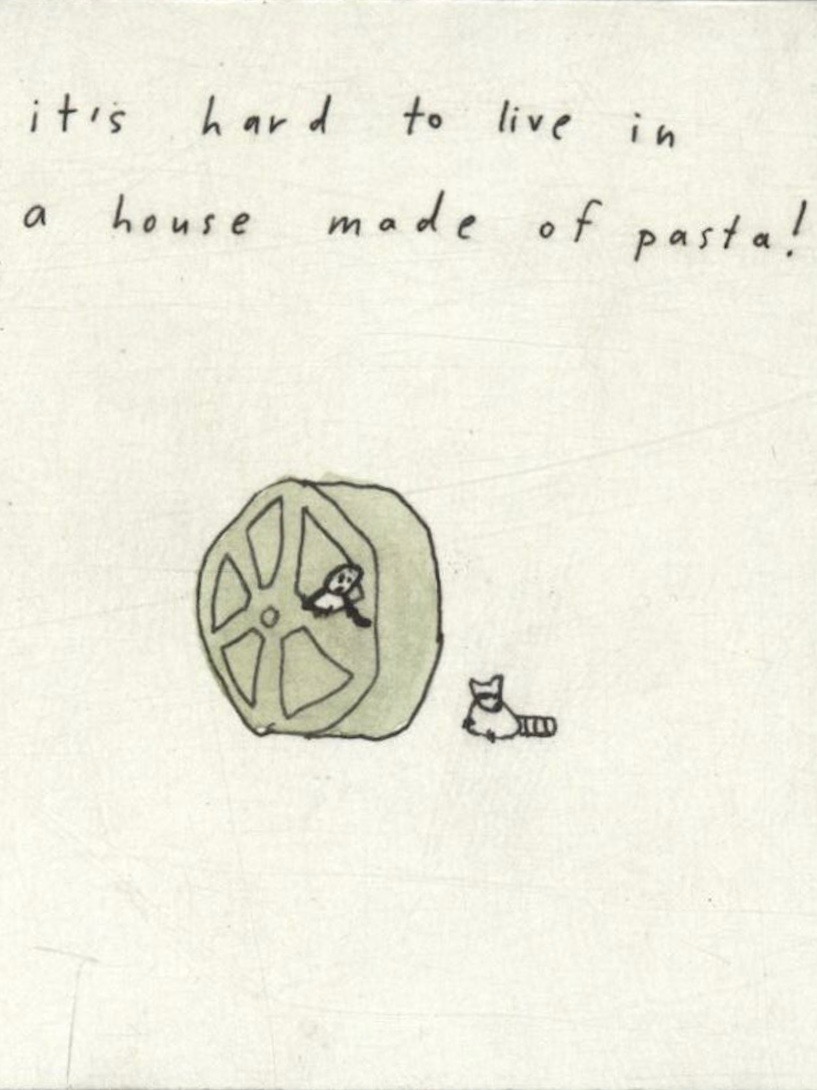 it's hard to live in
a house made of pasta!